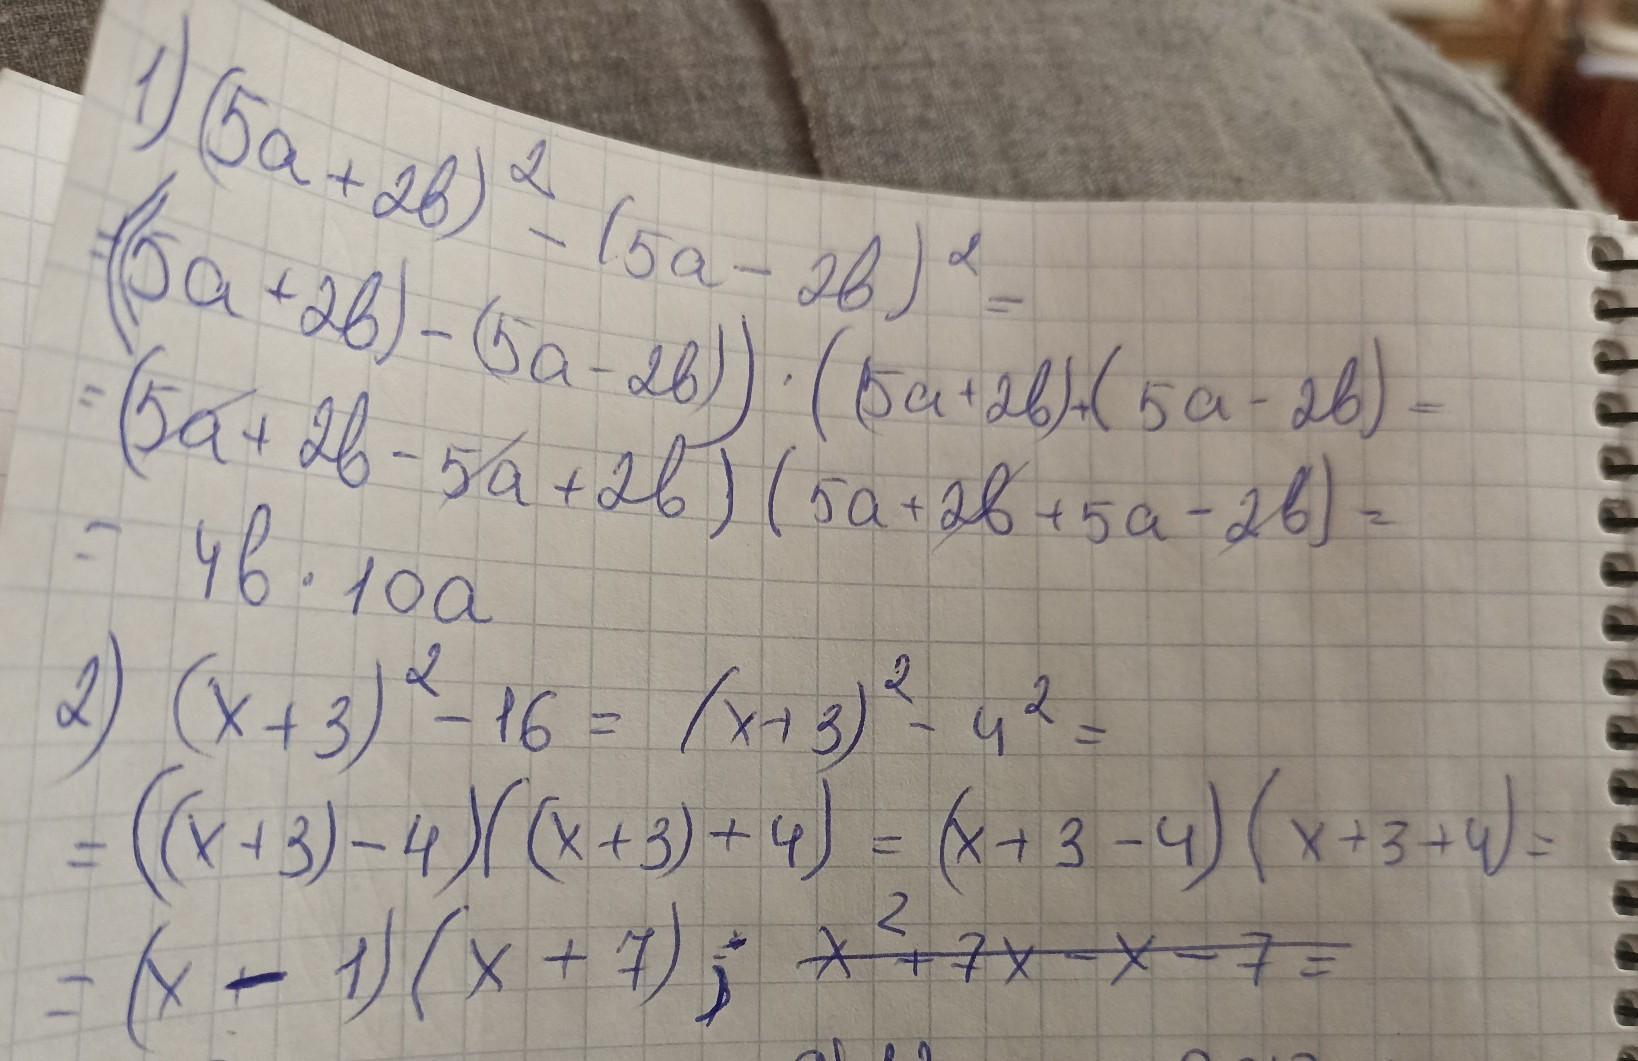 1) (5a + 2b)² - (5a - 2b)² =
= ((5a + 2b) - (5a - 2b)) · ((5a + 2b) + (5a - 2b) =
= (5a + 2b - 5a + 2b) (5a + 2b + 5a - 2b) =
= 4b · 10a
2) (x + 3)² - 16 = (x + 3)² - 4² =
= ((x + 3) - 4) ((x + 3) + 4) = (x + 3 - 4) (x + 3 + 4) =
= (x - 1) (x + 7) ; x² + 7x - x - 7 =